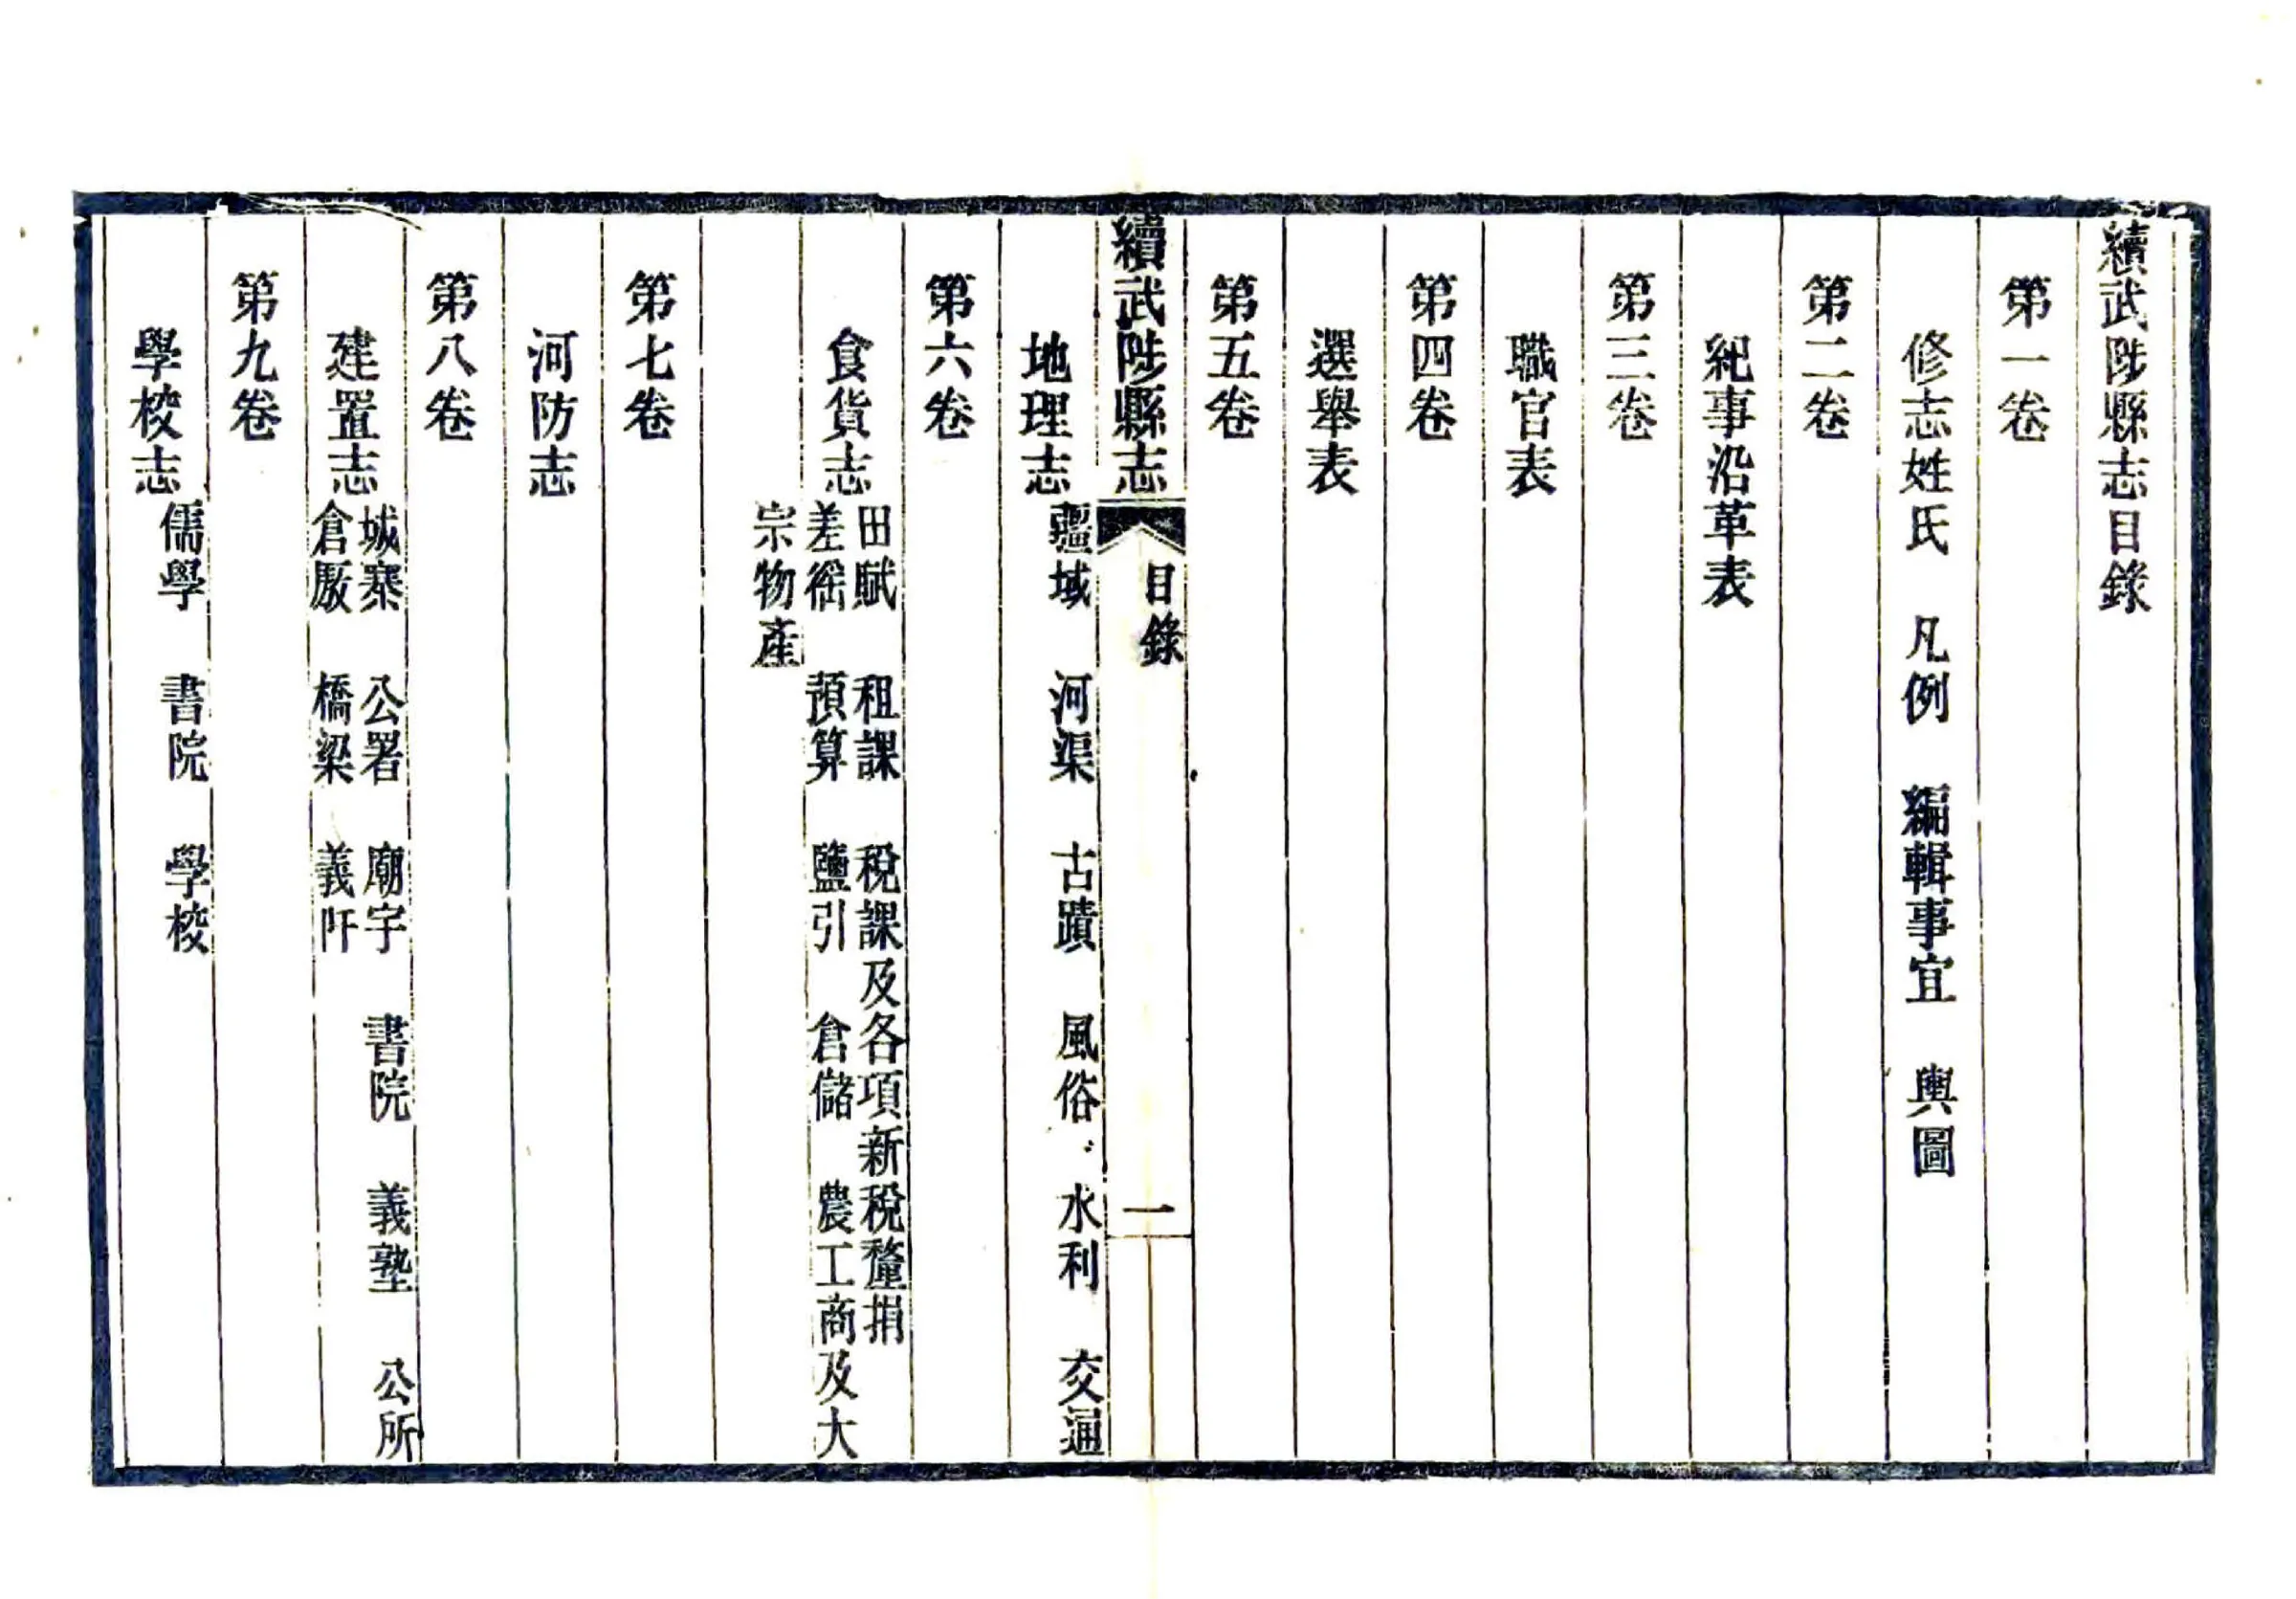 續武陟縣志目錄
第一卷
修志姓氏 凡例 編輯事宜 輿圖
第二卷
紀事沿革表
第三卷
職官表
第四卷
選舉表
第五卷
續武陟縣志 目錄 一
地理志 疆域 河渠 古蹟 風俗 水利 交通
第六卷
食貨志 田賦 租課 稅課及各項新稅釐捐
差徭 預算 鹽引 倉儲 農工商及大
宗物產
第七卷
河防志
第八卷
建置志 城寨 公署 廟宇 書院 義塾 公所
倉厫 橋梁 義阡
第九卷
學校志 儒學 書院 學校